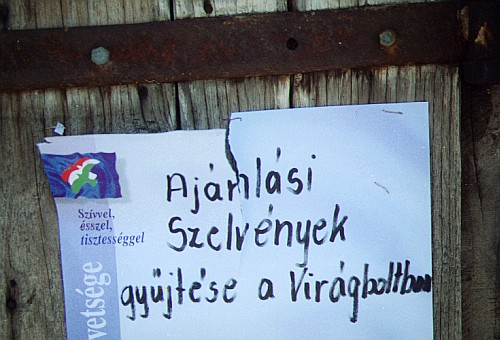 Szívvel,
ésszel,
tisztességgel
vetsége
Ajánlási
Szelvények
gyűjtése a Virágboltban